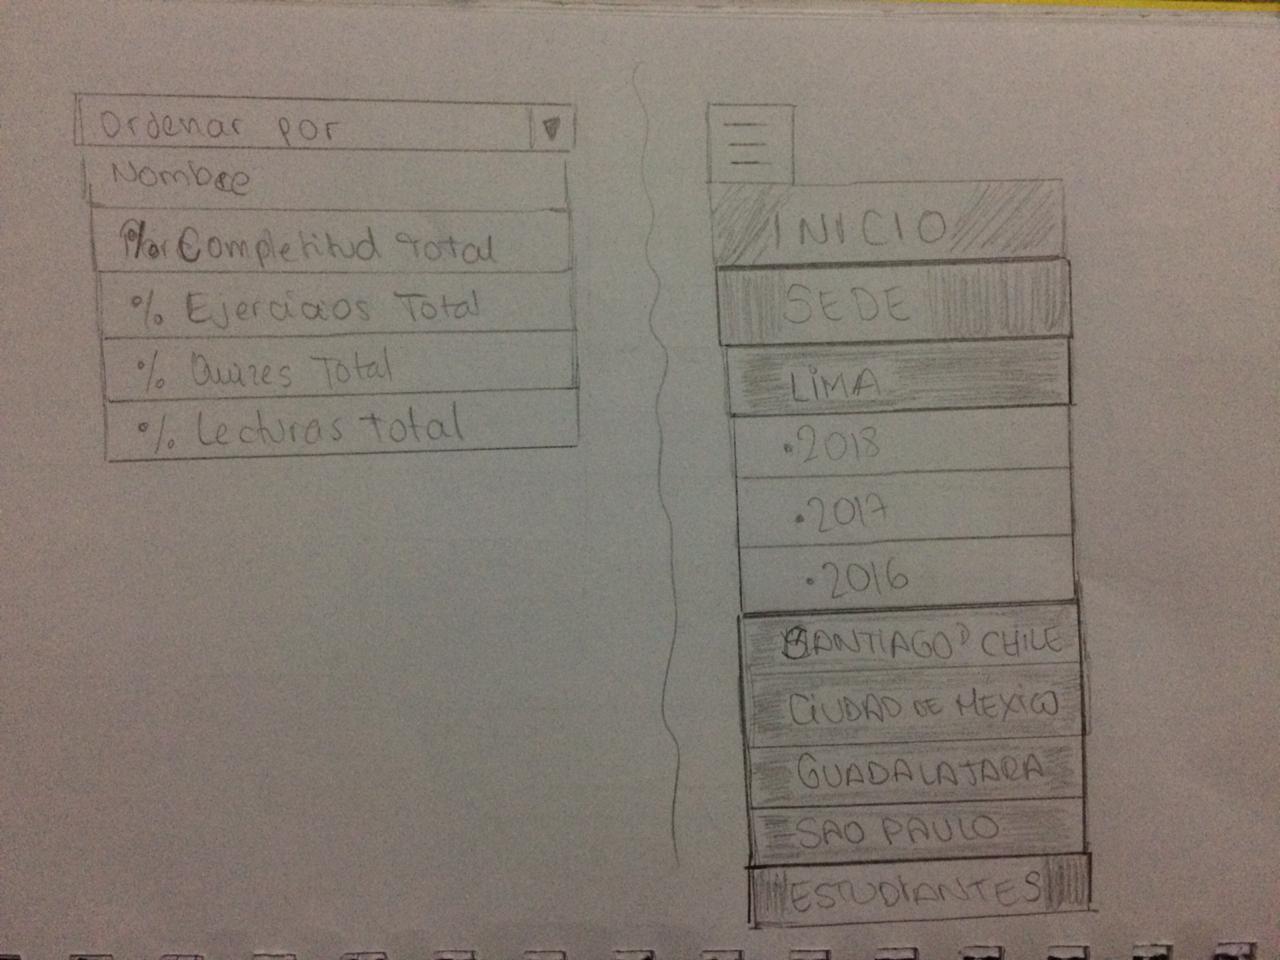 Ordenar por
Nombre
% Completitud Total
% Ejercicios Total
% Quizes Total
% Lecturas total
INICIO
SEDE
LIMA
•2018
•2017
•2016
SANTIAGO D CHILE
CIUDAD DE MEXICO
GUADALAJARA
SAO PAULO
ESTUDIANTES